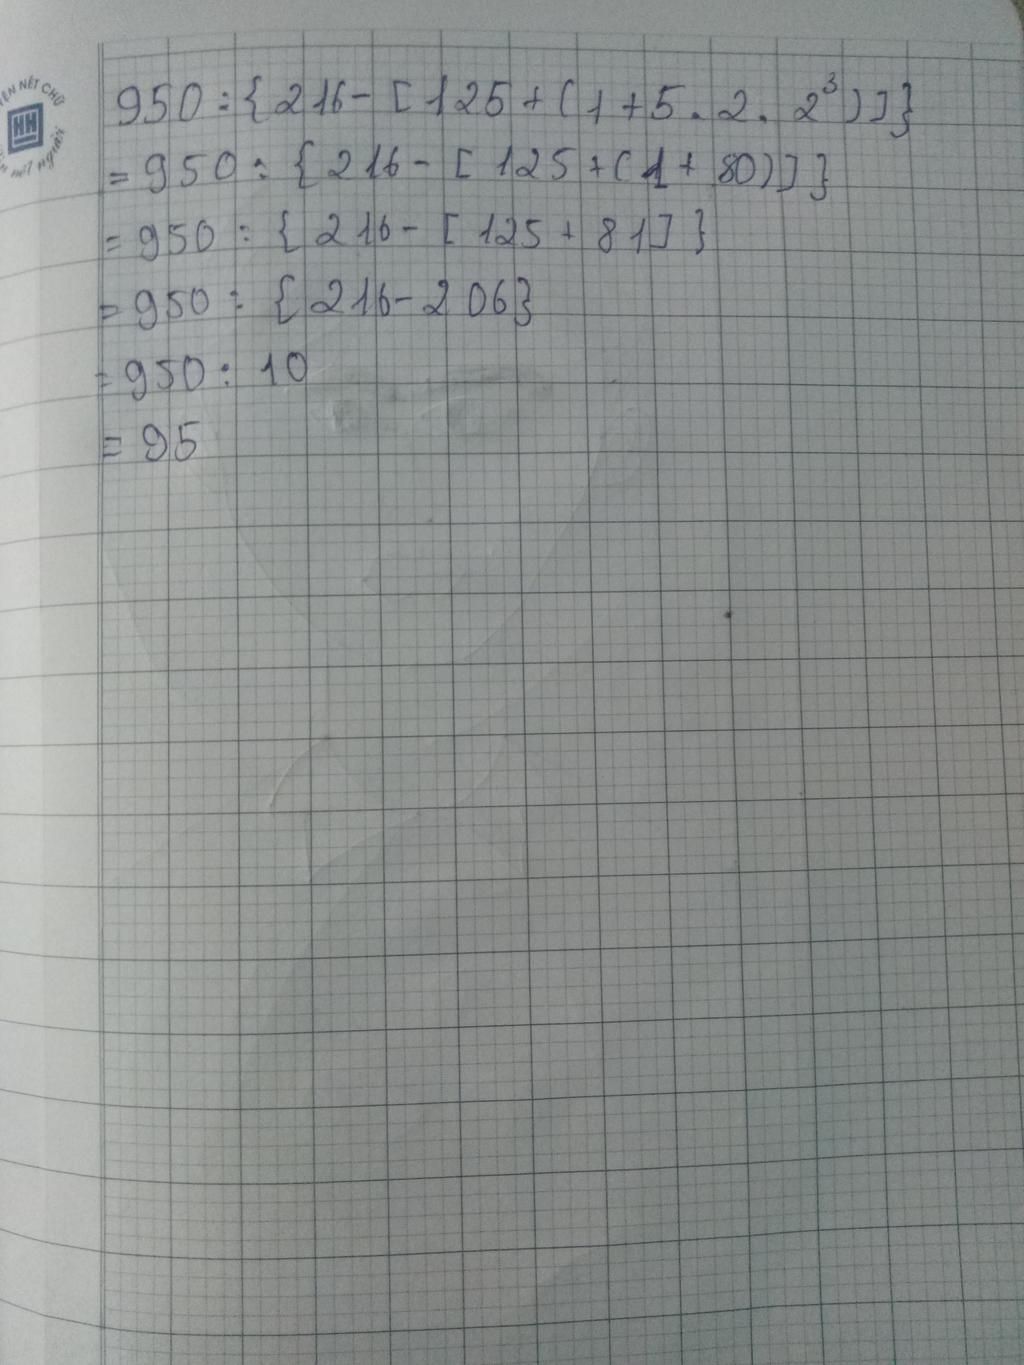 950 : { 216 - [ 125 + ( 1 + 5 . 2 . 2³ ) ] }
= 950 : { 216 - [ 125 + ( 1 + 80 ) ] }
= 950 : { 216 - [ 125 + 81 ] }
= 950 : { 216 - 206 }
= 950 : 10
= 95
NÉT CHỮ
HH
NẾT NGƯỜI